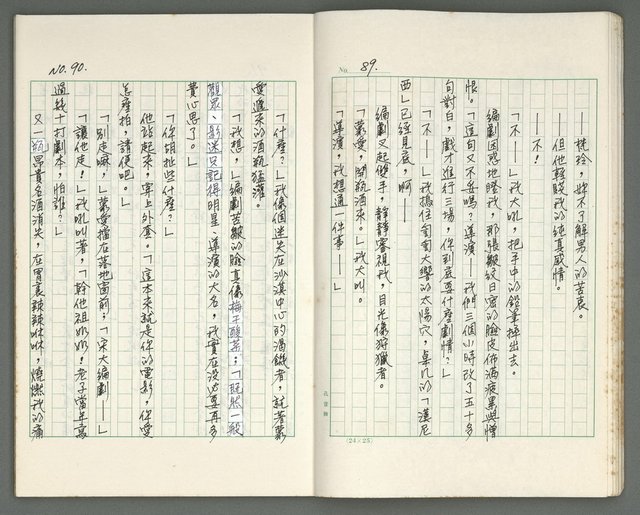 No. 89.
——桃玲，妳不了解男人的苦衷。
但他輕賤我的純真感情。
——不！
「不——」我大吼，把手中的鉛筆摔出去。
編劇困惑地瞪我，那張皺紋日密的臉皮佈滿疲累與憎
恨。「這句又不妥嗎？導演—我們三個小時改了五十多
句對白，戲才進行三場，你到底要什麼劇情？」
「不——」我摀住匐匐大響的太陽穴，桌几的「漢尼
西」已經見底，啊——
編劇又起雙手，靜靜審視我，目光像狩獵者。
「蒙愛，開瓶酒來。」我大叫。
「導演，我想通一件事——」
孔雀牌
(24×25)
No. 90.
「什麼？」我像個迷失在沙漠中心的渴饑者，就著蒙
愛遞來的酒瓶狂灌。
「我想，」編劇苦皺的臉真像梅干酸菜：「既然一般
觀眾、影迷只記得明星、導演的大名，我實在沒必要再多
費心思了。」
「你胡扯些什麼？」
他站起來，穿上外套。「這本來就是你的電影，你愛
怎麼拍，請便吧。」
「別走嘛，」蒙愛擋在落地窗前；「宋大編劇——」
「讓他走！」我吼叫著，「幹他祖奶奶！老子當年寫
過幾十打劇本，怕誰？」
又一瓶昂貴名酒消失，在胃裏辣辣咻咻，燒燃我的痛